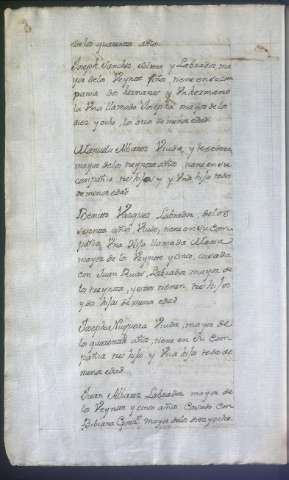 de los quarenta años.
Joseph Sanchez Soltero y Labrador, ma
yor de los Veynte años, tiene en su com
pania dos hermanos y Un hermano
la Una llamada Josepha mayor de los
diez y ocho, los otros de menor edad.
Manuela Albarez Viuda, y
mayor de los treynta años tiene en su
compañia tres hijos y Una hija todos
de menor edad.
Benito Vazquez Labrador, de los
sesenta años Viudo, tiene en su Com
pañia, Una Hija llamada Maria
mayor de los Veynte y cinco, casada
con Juan Labrador mayor de
los treynta, y estos tienen tres hijos
y dos hijas de menor edad.
Josepha Nogueira Viuda, mayor de
los quarenta años, tiene en su Com
pañia tres hijos y Una hija todos de
menor edad.
Juan Albarez Labrador mayor de
los Veynte y cinco años Casado con
Bibiana mayor de los diez y ocho